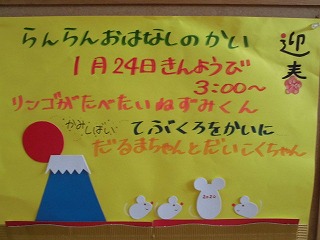 らんらんおはなしのかい
迎春
1月24日きんようび
3:00～
リンゴがたべたいねずみくん
かみしばい てぶくろをかいに
だるまちゃんとだいこくちゃん
2020